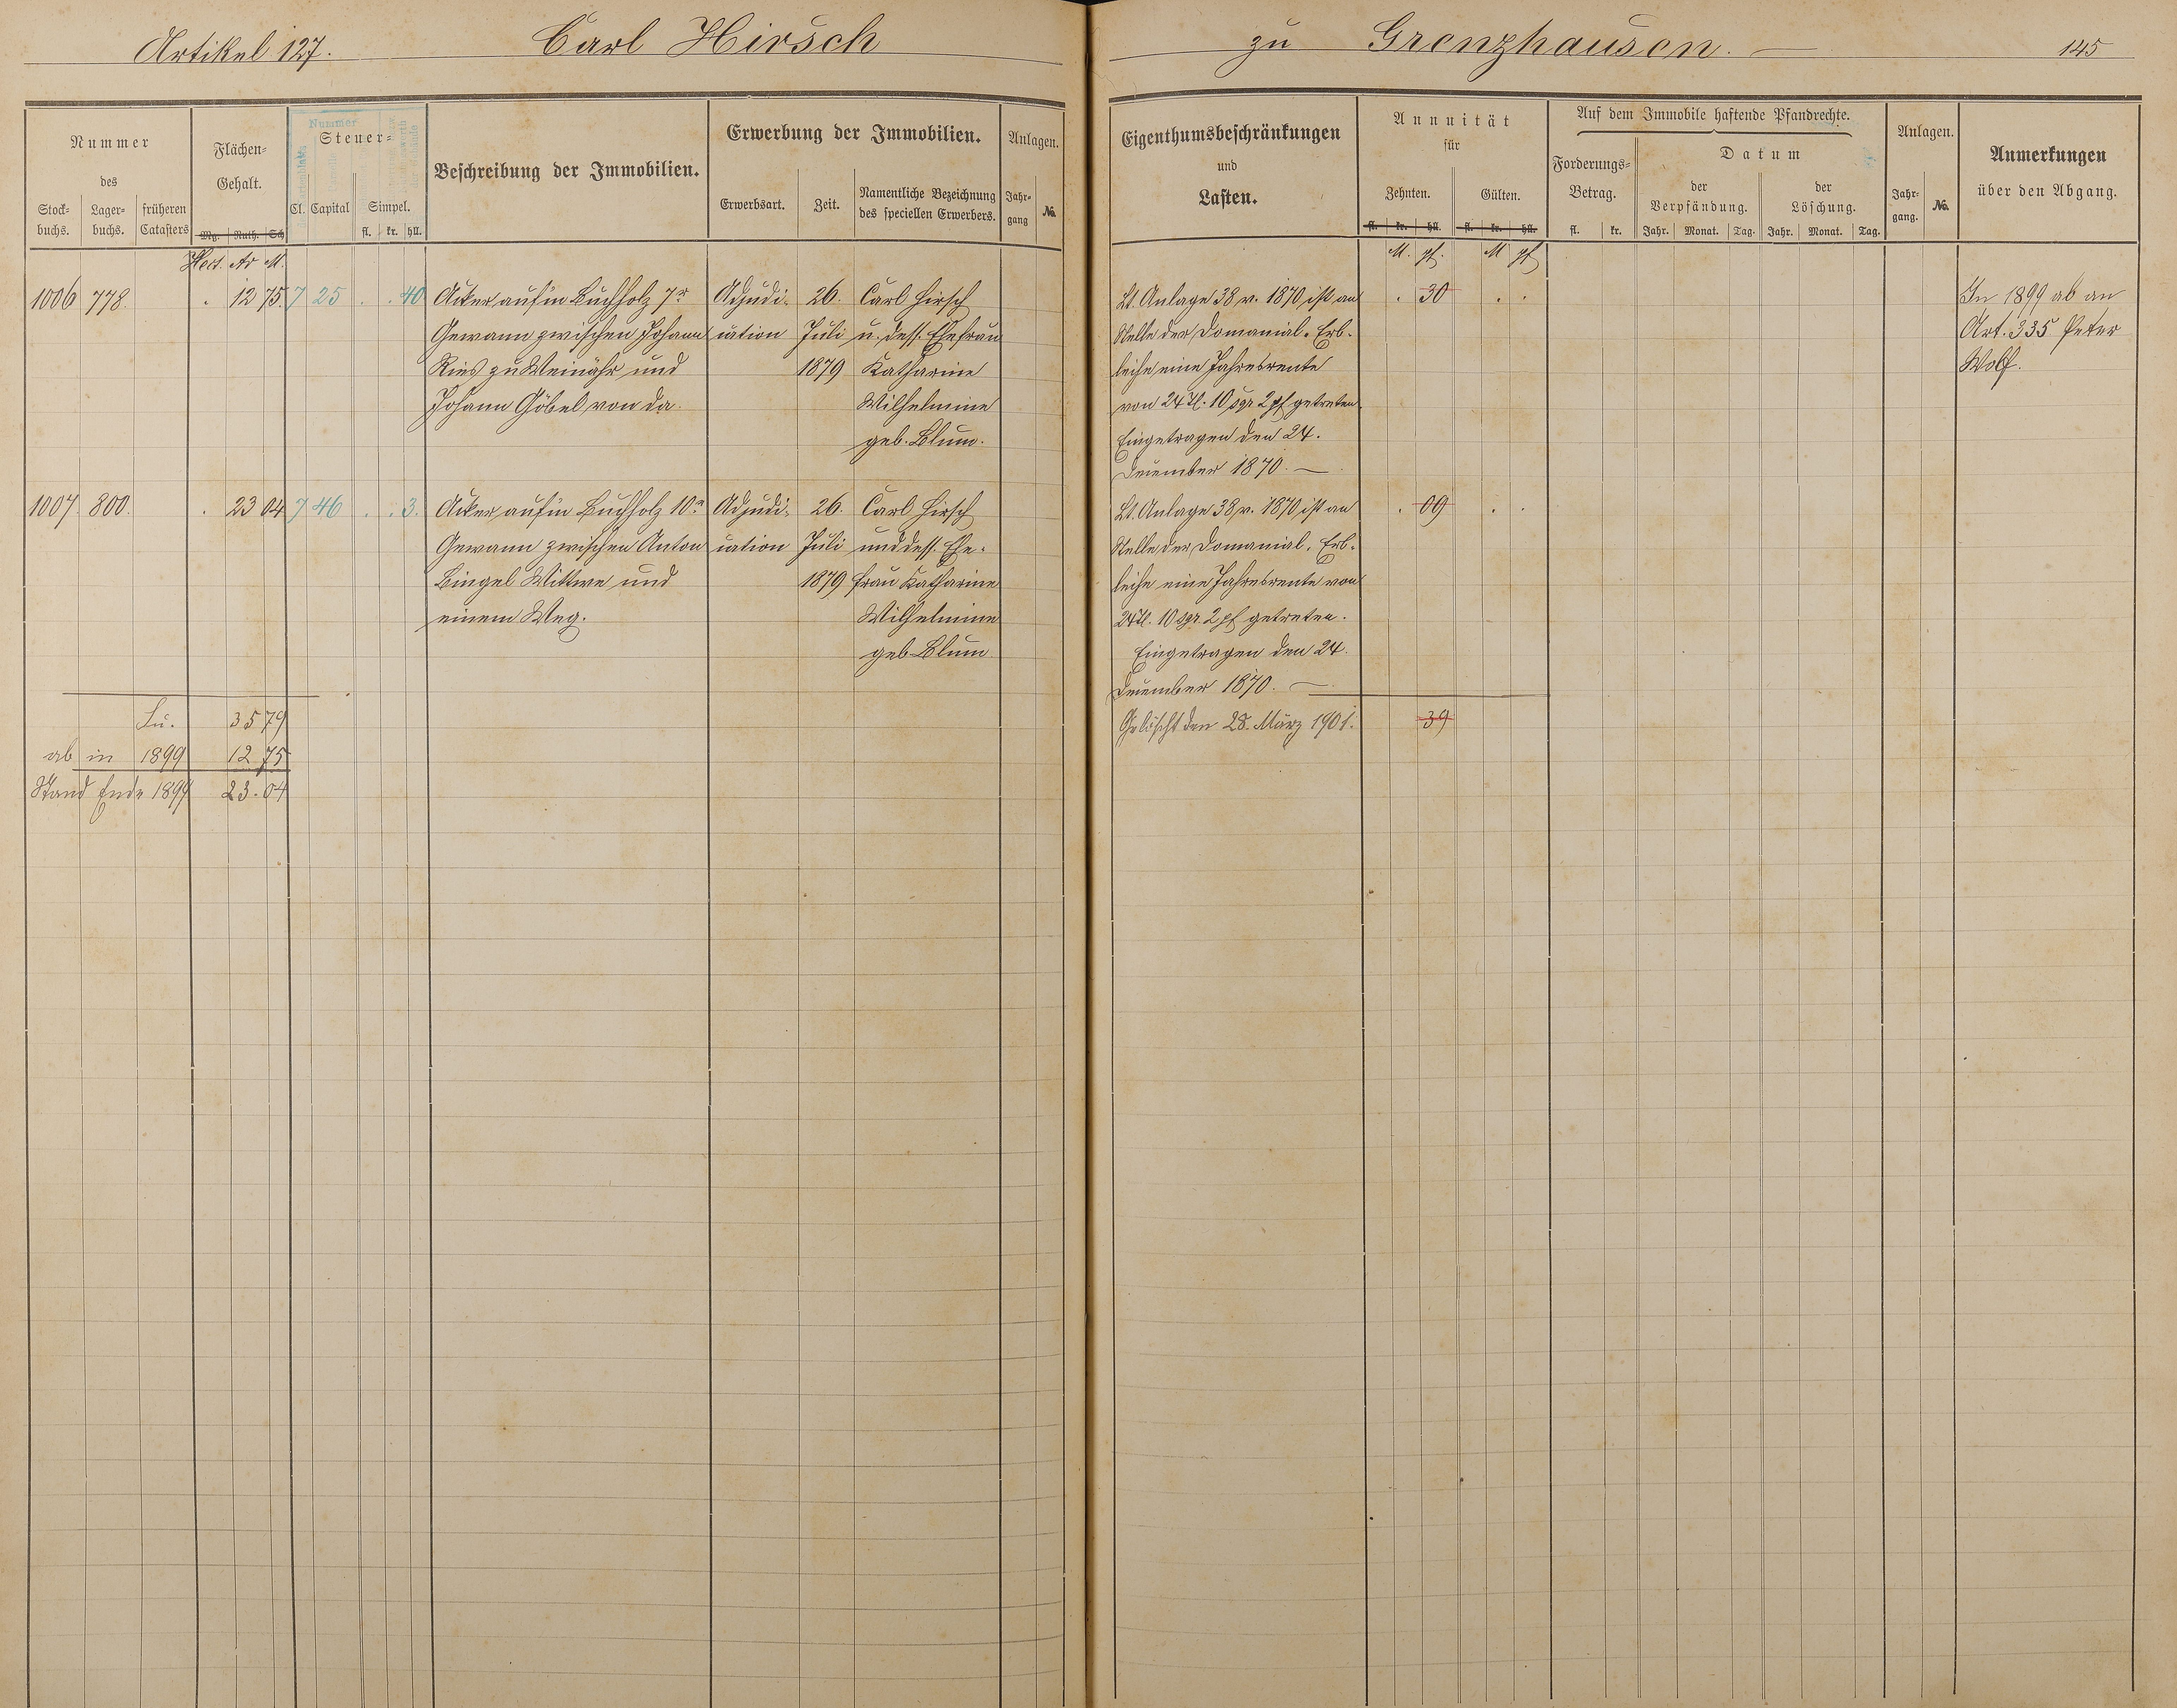 Artikel 127. Carl Hirsch
zu Grenzhausen. — 145
Nummer
des
Stock-
buchs.
Lager-
buchs.
früheren
Catasters
Flächen-
Gehalt.
Mg. Ruth. Sch
Nummer
Steuer-
Cl. Capital Simpel.
fl. kr. hll.
Beschreibung der Immobilien.
Erwerbung der Immobilien.
Erwerbsart. Zeit.
Namentliche Bezeichnung
des speciellen Erwerbers.
Anlagen.
Jahr-
gang
No.
Hect. Ar M.
1006 778. . 12 75. 7 25 . . 40 Acker auf'm Buchholz 7r Adjudi- 26. Carl Hirsch
Gewann zwischen Johann cation Juli u. dess. Ehefrau
Ries zu Weinähr und 1879 Katharine
Johann Göbel von da. Wilhelmine
geb. Blum.
1007 800. . 23 04 7 46 . . 3. Acker auf'm Buchholz 10r Adjudi- 26. Carl Hirsch
Gewann zwischen Anton cation Juli und dess. Ehe-
Bingel Wittwe und 1879 frau Katharine
einem Weg. Wilhelmine
geb. Blum
Su. 35 79
ab in 1899 12 75
Stand Ende 1899 23.04
Eigenthumsbeschränkungen
und
Lasten.
Annuität
für
Zehnten. Gülten.
fl. kr. hll. fl. kr. hll.
Auf dem Immobile haftende Pfandrechte.
Forderungs-
Betrag.
fl. kr.
Datum
der
Verpfändung.
Jahr. Monat. Tag.
der
Löschung.
Jahr. Monat. Tag.
Anlagen.
Jahr-
gang.
No.
Anmerkungen
über den Abgang.
M. pf. M pf
Lt. Anlage 38 v. 1870 ist an . 30 . . In 1899 ab an
Stelle der Domanial-Erb- Art. 335 Peter
leihe eine Jahresrente Wolf.
von 24 Tl. 10 sgr 2 pf getreten
Eingetragen den 24.
Dezember 1870. —
Lt. Anlage 38 v. 1870 ist an . 09 . .
Stelle der Domanial-Erb-
leihe eine Jahresrente von
24 Tl. 10 sgr. 2 pf getreten.
Eingetragen den 24.
Dezember 1870. —
Gelöscht den 28. März 1901. 39